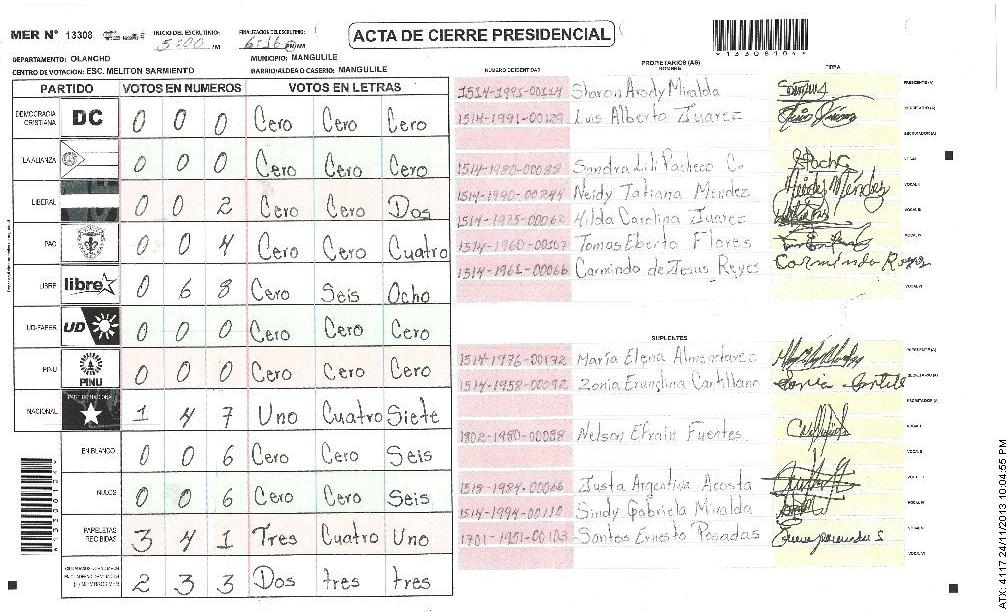 ACTA DE CIERRE PRESIDENCIAL
MER Nº 13308
INICIO DEL ESCRUTINIO: 5:00 /M
FINALIZACION ESCRUTINIO: 6:16 PM/AM
*13308104*
DEPARTAMENTO: OLANCHO MUNICIPIO: MANGULILE
CENTRO DE VOTACION: ESC. MELITON SARMIENTO BARRIO/ALDEA O CASERIO: MANGULILE
PARTIDO VOTOS EN NUMEROS VOTOS EN LETRAS
DEMOCRACIA CRISTIANA DC 0 0 0 Cero Cero Cero
LA ALIANZA 0 0 0 Cero Cero Cero
LIBERAL 0 0 2 Cero Cero Dos
PAC 0 0 4 Cero Cero Cuatro
LIBRE libre 0 6 8 Cero Seis Ocho
UD-FAPER UD 0 0 0 Cero Cero Cero
PINU PINU 0 0 0 Cero Cero Cero
NACIONAL PARTIDO NACIONAL 1 4 7 Uno Cuatro Siete
EN BLANCO 0 0 6 Cero Cero Seis
NULOS 0 0 6 Cero Cero Seis
PAPELETAS RECIBIDAS 3 4 1 Tres Cuatro Uno
2 3 3 Dos tres tres
PROPIETARIOS (AS)
NUMERO DE IDENTIDAD NOMBRE FIRMA
1514-1991-00114 Sharon Arody Miralda PRESIDENTE (A)
1514-1991-00129 Luis Alberto Juarez SECRETARIO (A)
ESCRUTADOR (A)
1514-1980-00089 Sandra Lili Pacheco C. VOCAL I
1514-1990-00244 Neidy Tatiana Mendez Neidy Méndez VOCAL II
1514-1975-00062 Hilda Carolina Juarez VOCAL III
1514-1960-00107 Tomas Eberto Flores VOCAL IV
1514-1961-00066 Carmindo de Jesus Reyes Carmindo Reyes VOCAL V
VOCAL VI
SUPLENTES
1514-1976-00172 Maria Elena Almendarez PRESIDENTE (A)
1514-1958-00092 Zonia Erundina Cantillano SECRETARIO (A)
ESCRUTADOR (A)
1802-1980-00088 Nelson Efrain Fuentes VOCAL I
VOCAL II
1515-1984-00066 Justa Argentina Acosta VOCAL III
1514-1994-00110 Sindy Gabriela Miralda VOCAL IV
1701-1951-00103 Santos Ernesto Posadas VOCAL V
VOCAL VI
ATX: 4117 24/11/2013 10:04:55 PM